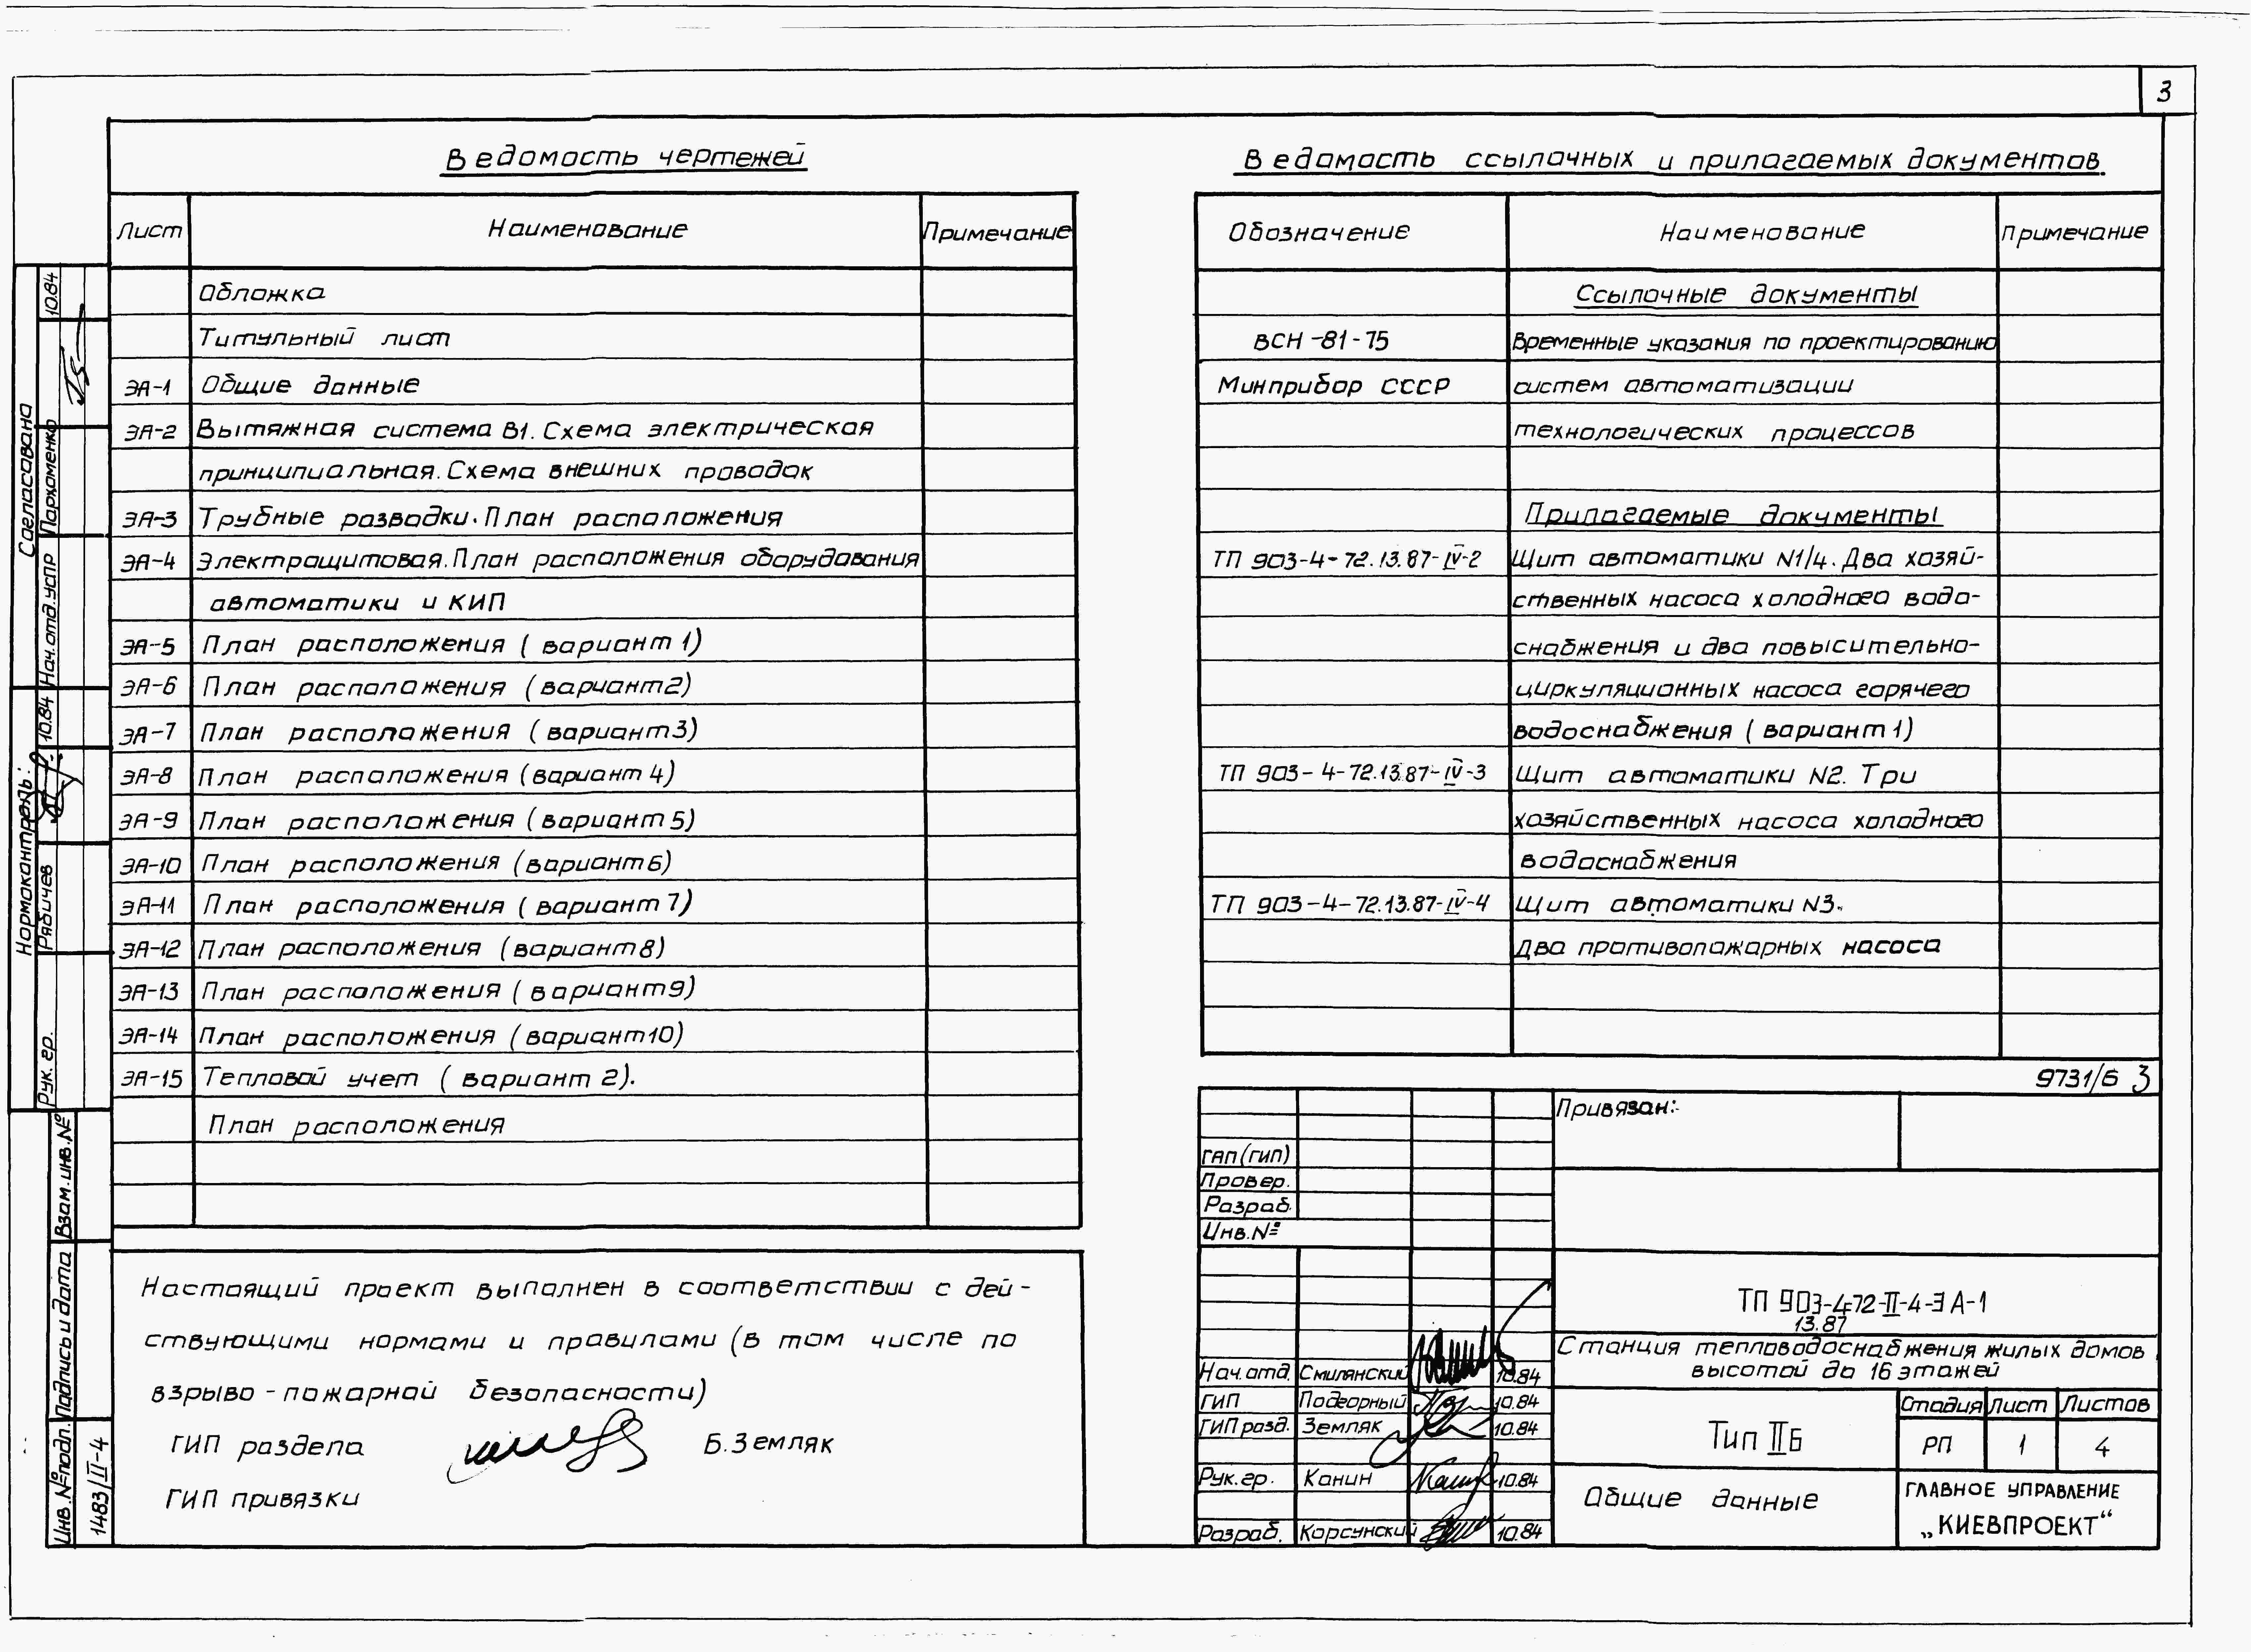 3
Ведомость чертежей
Лист Наименование Примечание
Обложка
Титульный лист
ЭА-1 Общие данные
ЭА-2 Вытяжная система В1. Схема электрическая
принципиальная. Схема внешних проводок
ЭА-3 Трубные разводки. План расположения
ЭА-4 Электрощитовая. План расположения оборудования
автоматики и КИП
ЭА-5 План расположения (вариант 1)
ЭА-6 План расположения (вариант 2)
ЭА-7 План расположения (вариант 3)
ЭА-8 План расположения (вариант 4)
ЭА-9 План расположения (вариант 5)
ЭА-10 План расположения (вариант 6)
ЭА-11 План расположения (вариант 7)
ЭА-12 План расположения (вариант 8)
ЭА-13 План расположения (вариант 9)
ЭА-14 План расположения (вариант 10)
ЭА-15 Тепловой учет (вариант 2).
План расположения
Настоящий проект выполнен в соответствии с дей-
ствующими нормами и правилами (в том числе по
взрыво-пожарной безопасности)
ГИП раздела Б. Земляк
ГИП привязки
Ведомость ссылочных и прилагаемых документов
Обозначение Наименование Примечание
Ссылочные документы
ВСН-81-75 Временные указания по проектированию
Минприбор СССР систем автоматизации
технологических процессов
Прилагаемые документы
ТП 903-4-72.13.87-IV-2 Щит автоматики N1/4. Два хозяй-
ственных насоса холодного водо-
снабжения и два повысительно-
циркуляционных насоса горячего
водоснабжения (вариант 1)
ТП 903-4-72.13.87-IV-3 Щит автоматики N2. Три
хозяйственных насоса холодного
водоснабжения
ТП 903-4-72.13.87-IV-4 Щит автоматики N3.
Два противопожарных насоса
9731/6 3
Привязан:
ГАП (ГИП)
Провер.
Разраб.
Инв. №
ТП 903-4-72-II-4-ЭА-1
13.87
Станция тепловодоснабжения жилых домов
высотой до 16 этажей
Нач. отд. Смилянский 10.84
ГИП Подгорный 10.84
ГИП разд. Земляк 10.84
Рук. гр. Канин 10.84
Разраб. Корсунский 10.84
Тип II Б
Стадия Лист Листов
РП 1 4
Общие данные
ГЛАВНОЕ УПРАВЛЕНИЕ
„КИЕВПРОЕКТ“
Согласовано
Нач. отд. УСПР Пархоменко 10.84
Нормоконтроль:
Рук. гр. Рябичев 10.84
Взам. инв. №
Подпись и дата
Инв. № подл.
1483/II-4